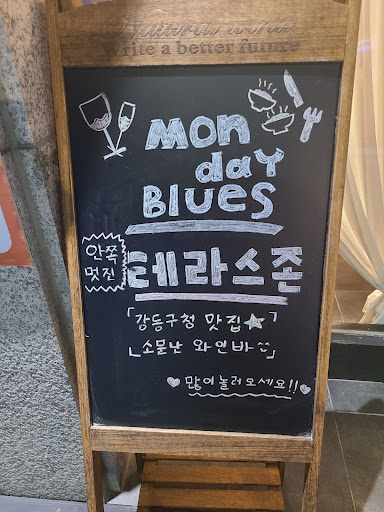 Write a better future
Mon
daY
BLUeS
안쪽
멋진
테라스존
「강동구청 맛집★
소문난 와인바」
♥ 많이놀러오세요!! ♥